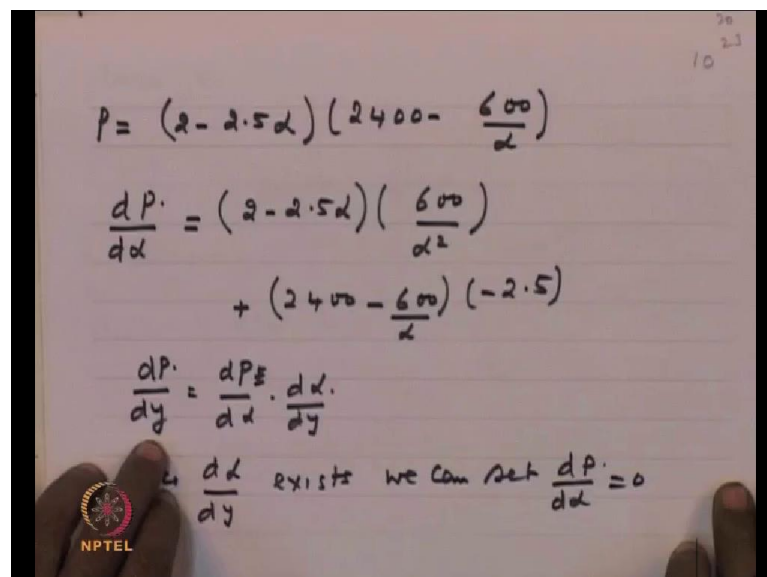 20
10 23
P = (2 - 2.5α) (2400 - 600/α)
dP/dα = (2 - 2.5α) (600/α²)
+ (2400 - 600/α) (-2.5)
dP/dy = dP/dα · dα/dy
dα/dy exists we can set dP/dα = 0
NPTEL